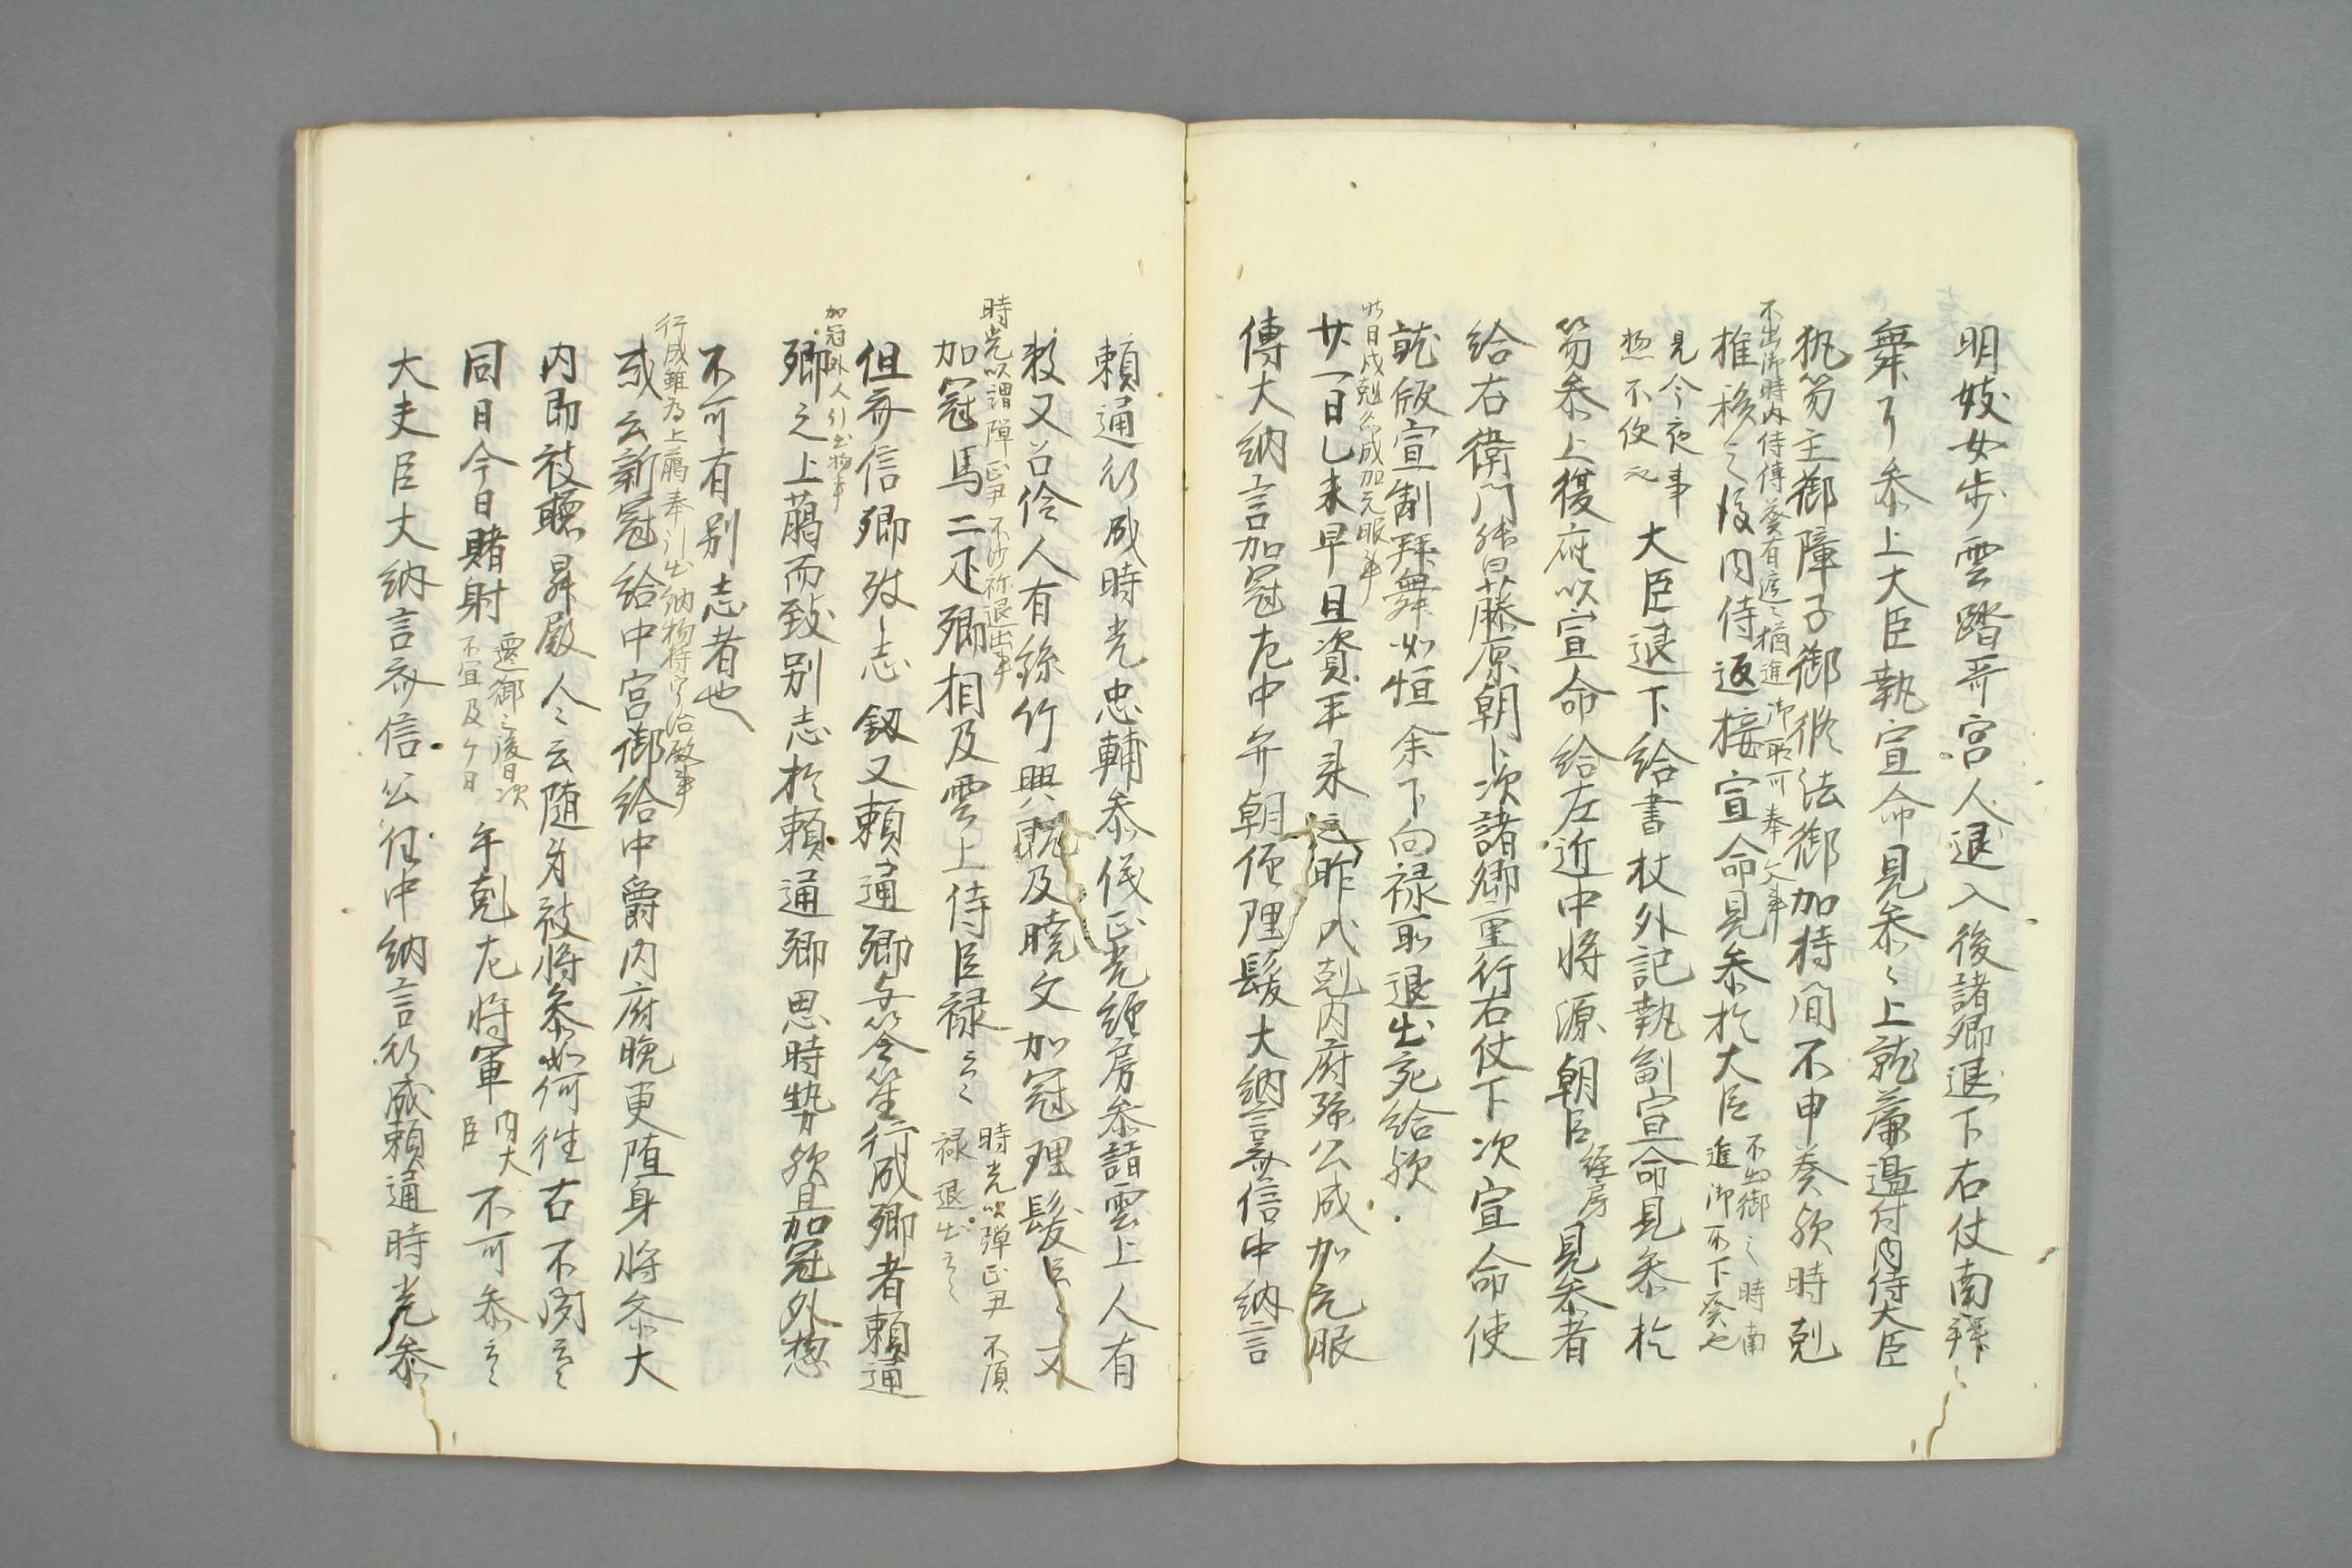 明妓女歩雲踏哥宮人退入後諸卿退下右仗南拝〻
舞了参上大臣執宣命見参〻上就簾邉付内侍大臣
執笏主御障子御修法御加持間不申奏欤時剋
不出御時内侍傳奏有遮〻猶進御所可奉文事
推移之後内侍返接宣命見参於大臣
不出御之時南
進御所下奏也
見今夜事
愁不便也
大臣退下給書杖外記執副宣命見参於
笏参上復府以宣命給左近中将源朝臣
経房
見参者
給右衛門藤原朝臣次諸卿重行右仗下次宣命使
就版宣制拝舞如恒余下向禄所退出宛給欤
廿日戌剋公成加元服事
廿一日乙未早旦資平来昨戌剋内府孫公成加元服
傳大納言加冠左中弁朝経理髪大納言斉信中納言
頼通行成時光忠輔参儀正光経房参諸雲上人有
数又召伶人有絲竹興既及暁文加冠理髪云〻又
時光以謂弾正尹不沙祢退出事
加冠馬二疋卿相及雲上侍臣禄云〻
時光以弾正尹不頂
禄退出云〻
但斉信卿致志釼又頼通卿与笙行成卿者頼通
加冠外人引出物事
卿之上﨟而致別志於頼通卿思時勢欤且加冠外惣
不可有別志者也
行成雖為上﨟奉引出納物持宇治殿事
或云新冠給中宮御給中爵内府晩更随身将参大
内即被聴昇殿人云随身被将参如何往古不聞云〻
同日今日賭射
還御之後日次
不宜及今日
午剋左将軍
内大
臣
不可参云〻
大夫臣大納言斉信公任中納言行成頼通時光参